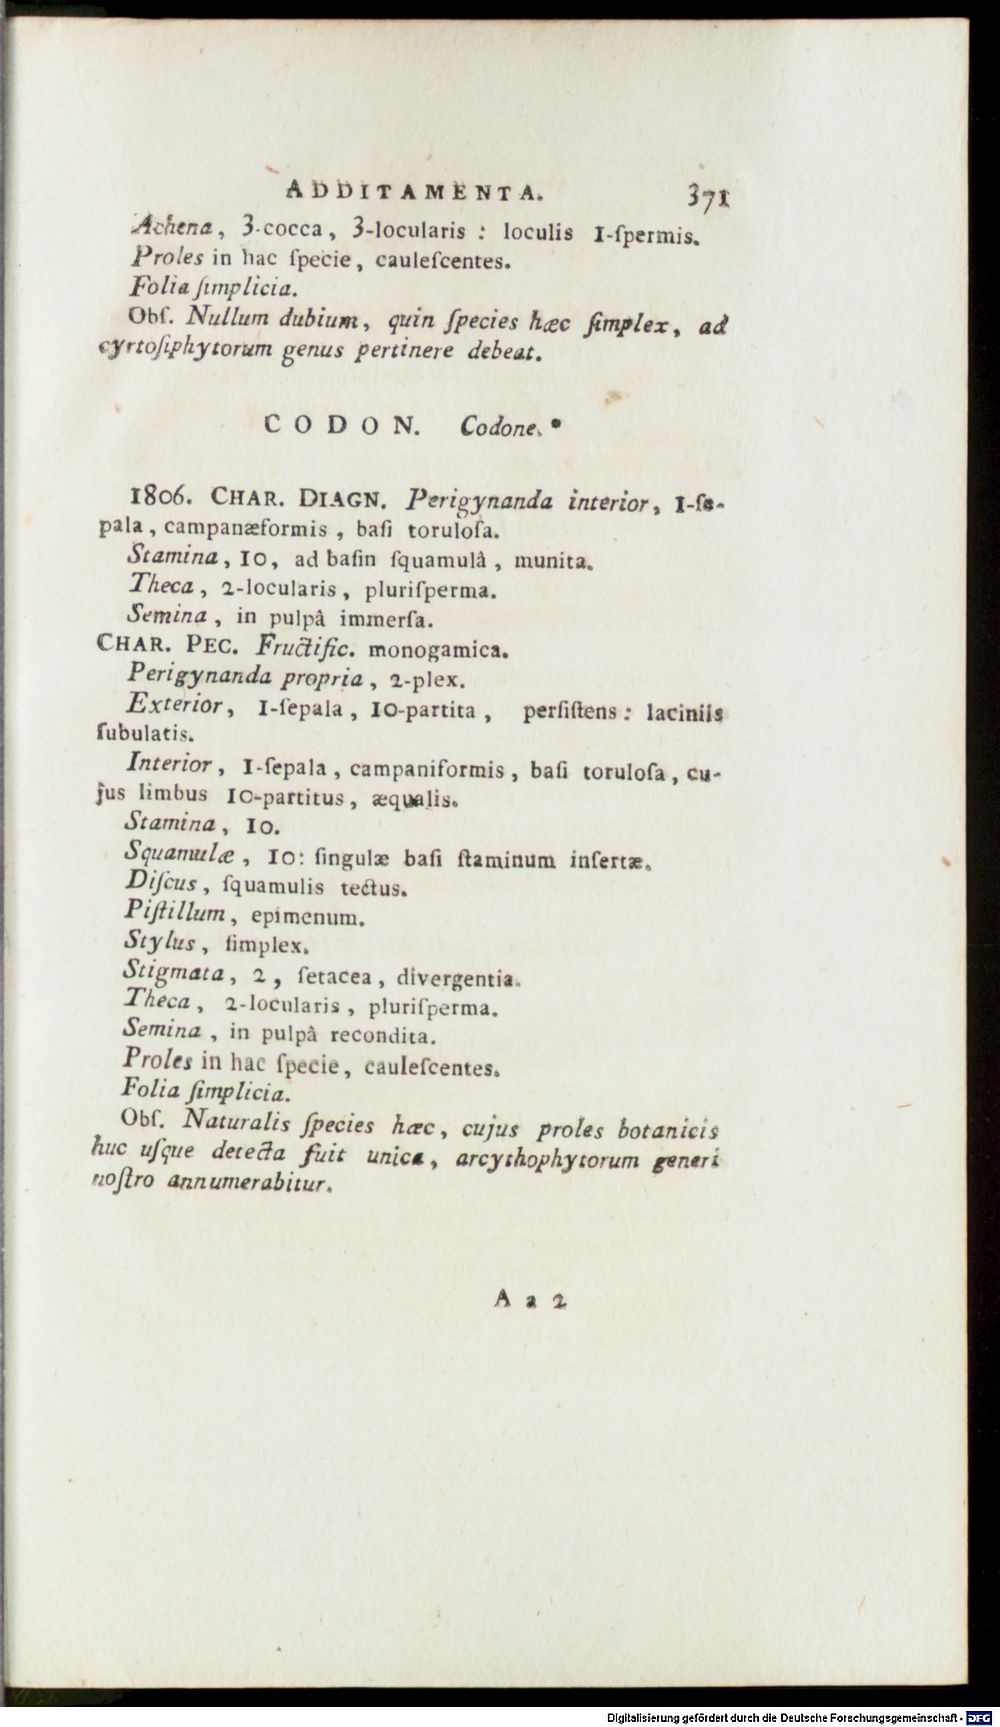 ADDITAMENTA. 371
Achena, 3-cocca, 3-locularis : loculis 1-ſpermis.
Proles in hac ſpecie, cauleſcentes.
Folia ſimplicia.
Obſ. Nullum dubium, quin ſpecies hæc ſimplex, ad
cyrtoſiphytorum genus pertinere debeat.
CODON. Codone. *
1806. CHAR. DIAGN. Perigynanda interior, 1-ſe-
pala, campanæformis, baſi toruloſa.
Stamina, 10, ad baſin ſquamulâ, munita.
Theca, 2-locularis, pluriſperma.
Semina, in pulpâ immerſa.
CHAR. PEC. Fructific. monogamica.
Perigynanda propria, 2-plex.
Exterior, 1-ſepala, 10-partita, perſiſtens : laciniis
ſubulatis.
Interior, 1-ſepala, campaniformis, baſi toruloſa, cu-
jus limbus 10-partitus, æqualis.
Stamina, 10.
Squamulæ, 10: ſingulæ baſi ſtaminum inſertæ.
Diſcus, ſquamulis tectus.
Piſtillum, epimenum.
Stylus, ſimplex.
Stigmata, 2, ſetacea, divergentia.
Theca, 2-locularis, pluriſperma.
Semina, in pulpâ recondita.
Proles in hac ſpecie, cauleſcentes.
Folia ſimplicia.
Obſ. Naturalis ſpecies hæc, cujus proles botanicis
huc uſque detecta fuit unica, arcythophytorum generi
noſtro annumerabitur.
A a 2
Digitalisierung gefördert durch die Deutsche Forschungsgemeinschaft - DFG